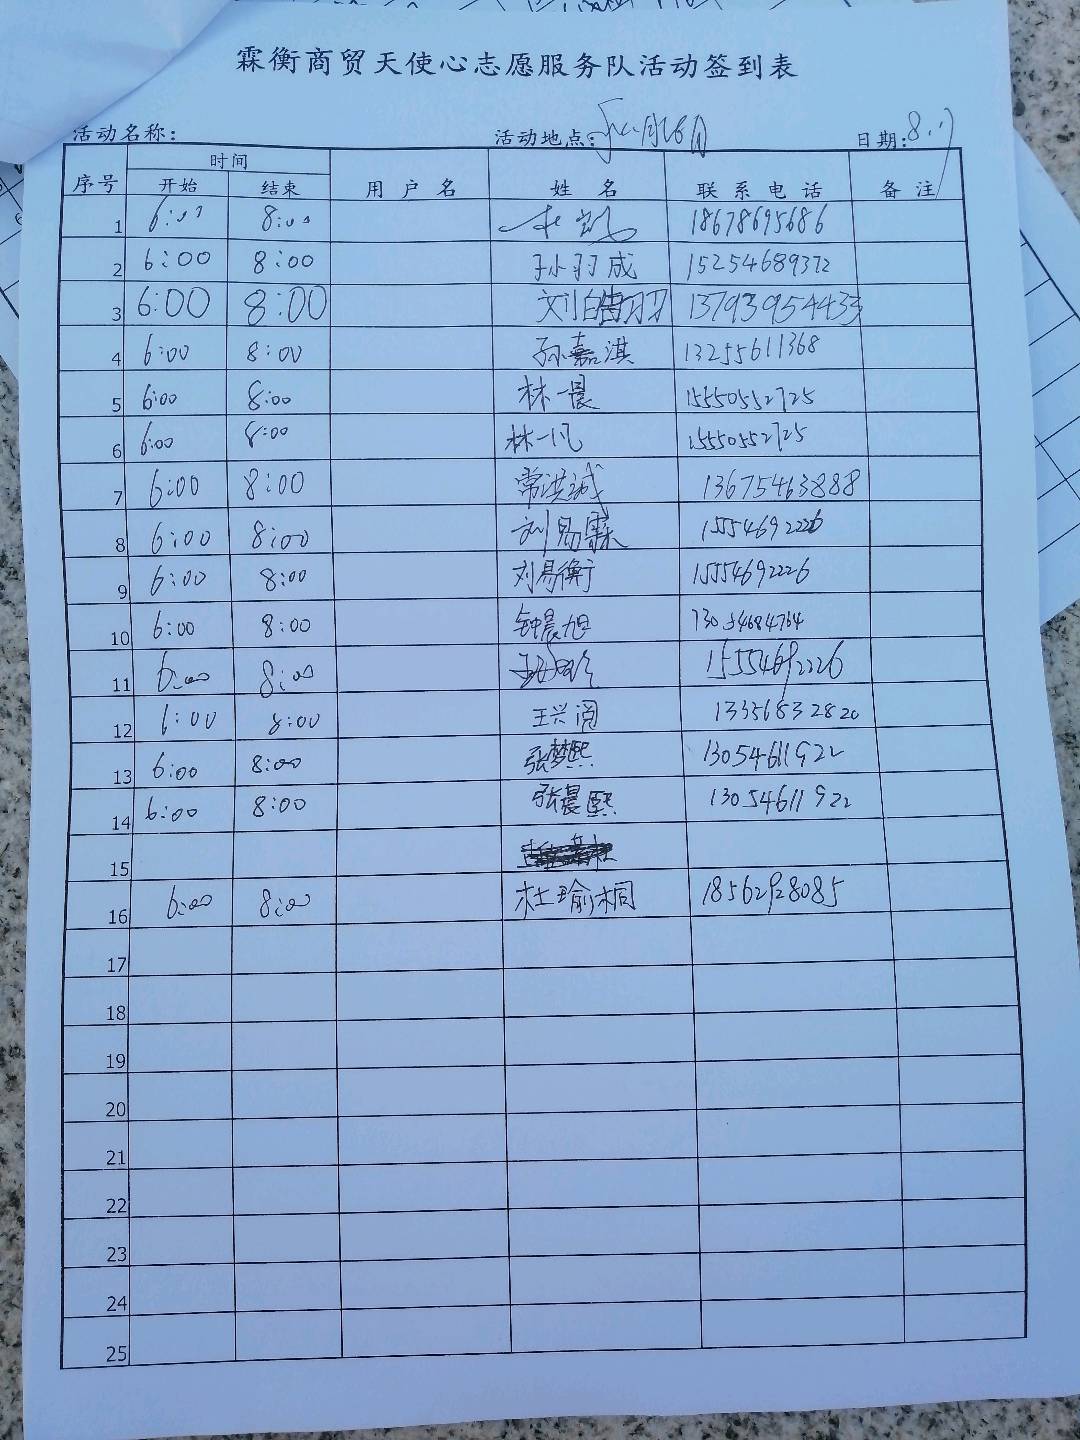 霖衡商贸天使心志愿服务队活动签到表
活动名称: 活动地点: 日期:8.17
序号 时间 用户名 姓名 联系电话 备注
开始 结束
1 6:00 8:00 18678695686
2 6:00 8:00 孙羽成 15254689372
3 6:00 8:00 13793954433
4 6:00 8:00 孙嘉淇 13255611368
5 6:00 8:00 林一晨 15550552725
6 6:00 8:00 林一凡 15550552725
7 6:00 8:00 常洪诚 13675463888
8 6:00 8:00 刘易霖 15554692226
9 6:00 8:00 刘易衡 15554692226
10 6:00 8:00 钟晨旭 13054684764
11 6:00 8:00 15554692226
12 6:00 8:00 王兴阅 13356832820
13 6:00 8:00 张梦熙 13054611922
14 6:00 8:00 张晨熙 13054611922
15
16 6:00 8:00 杜瑜桐 18562928085
17
18
19
20
21
22
23
24
25